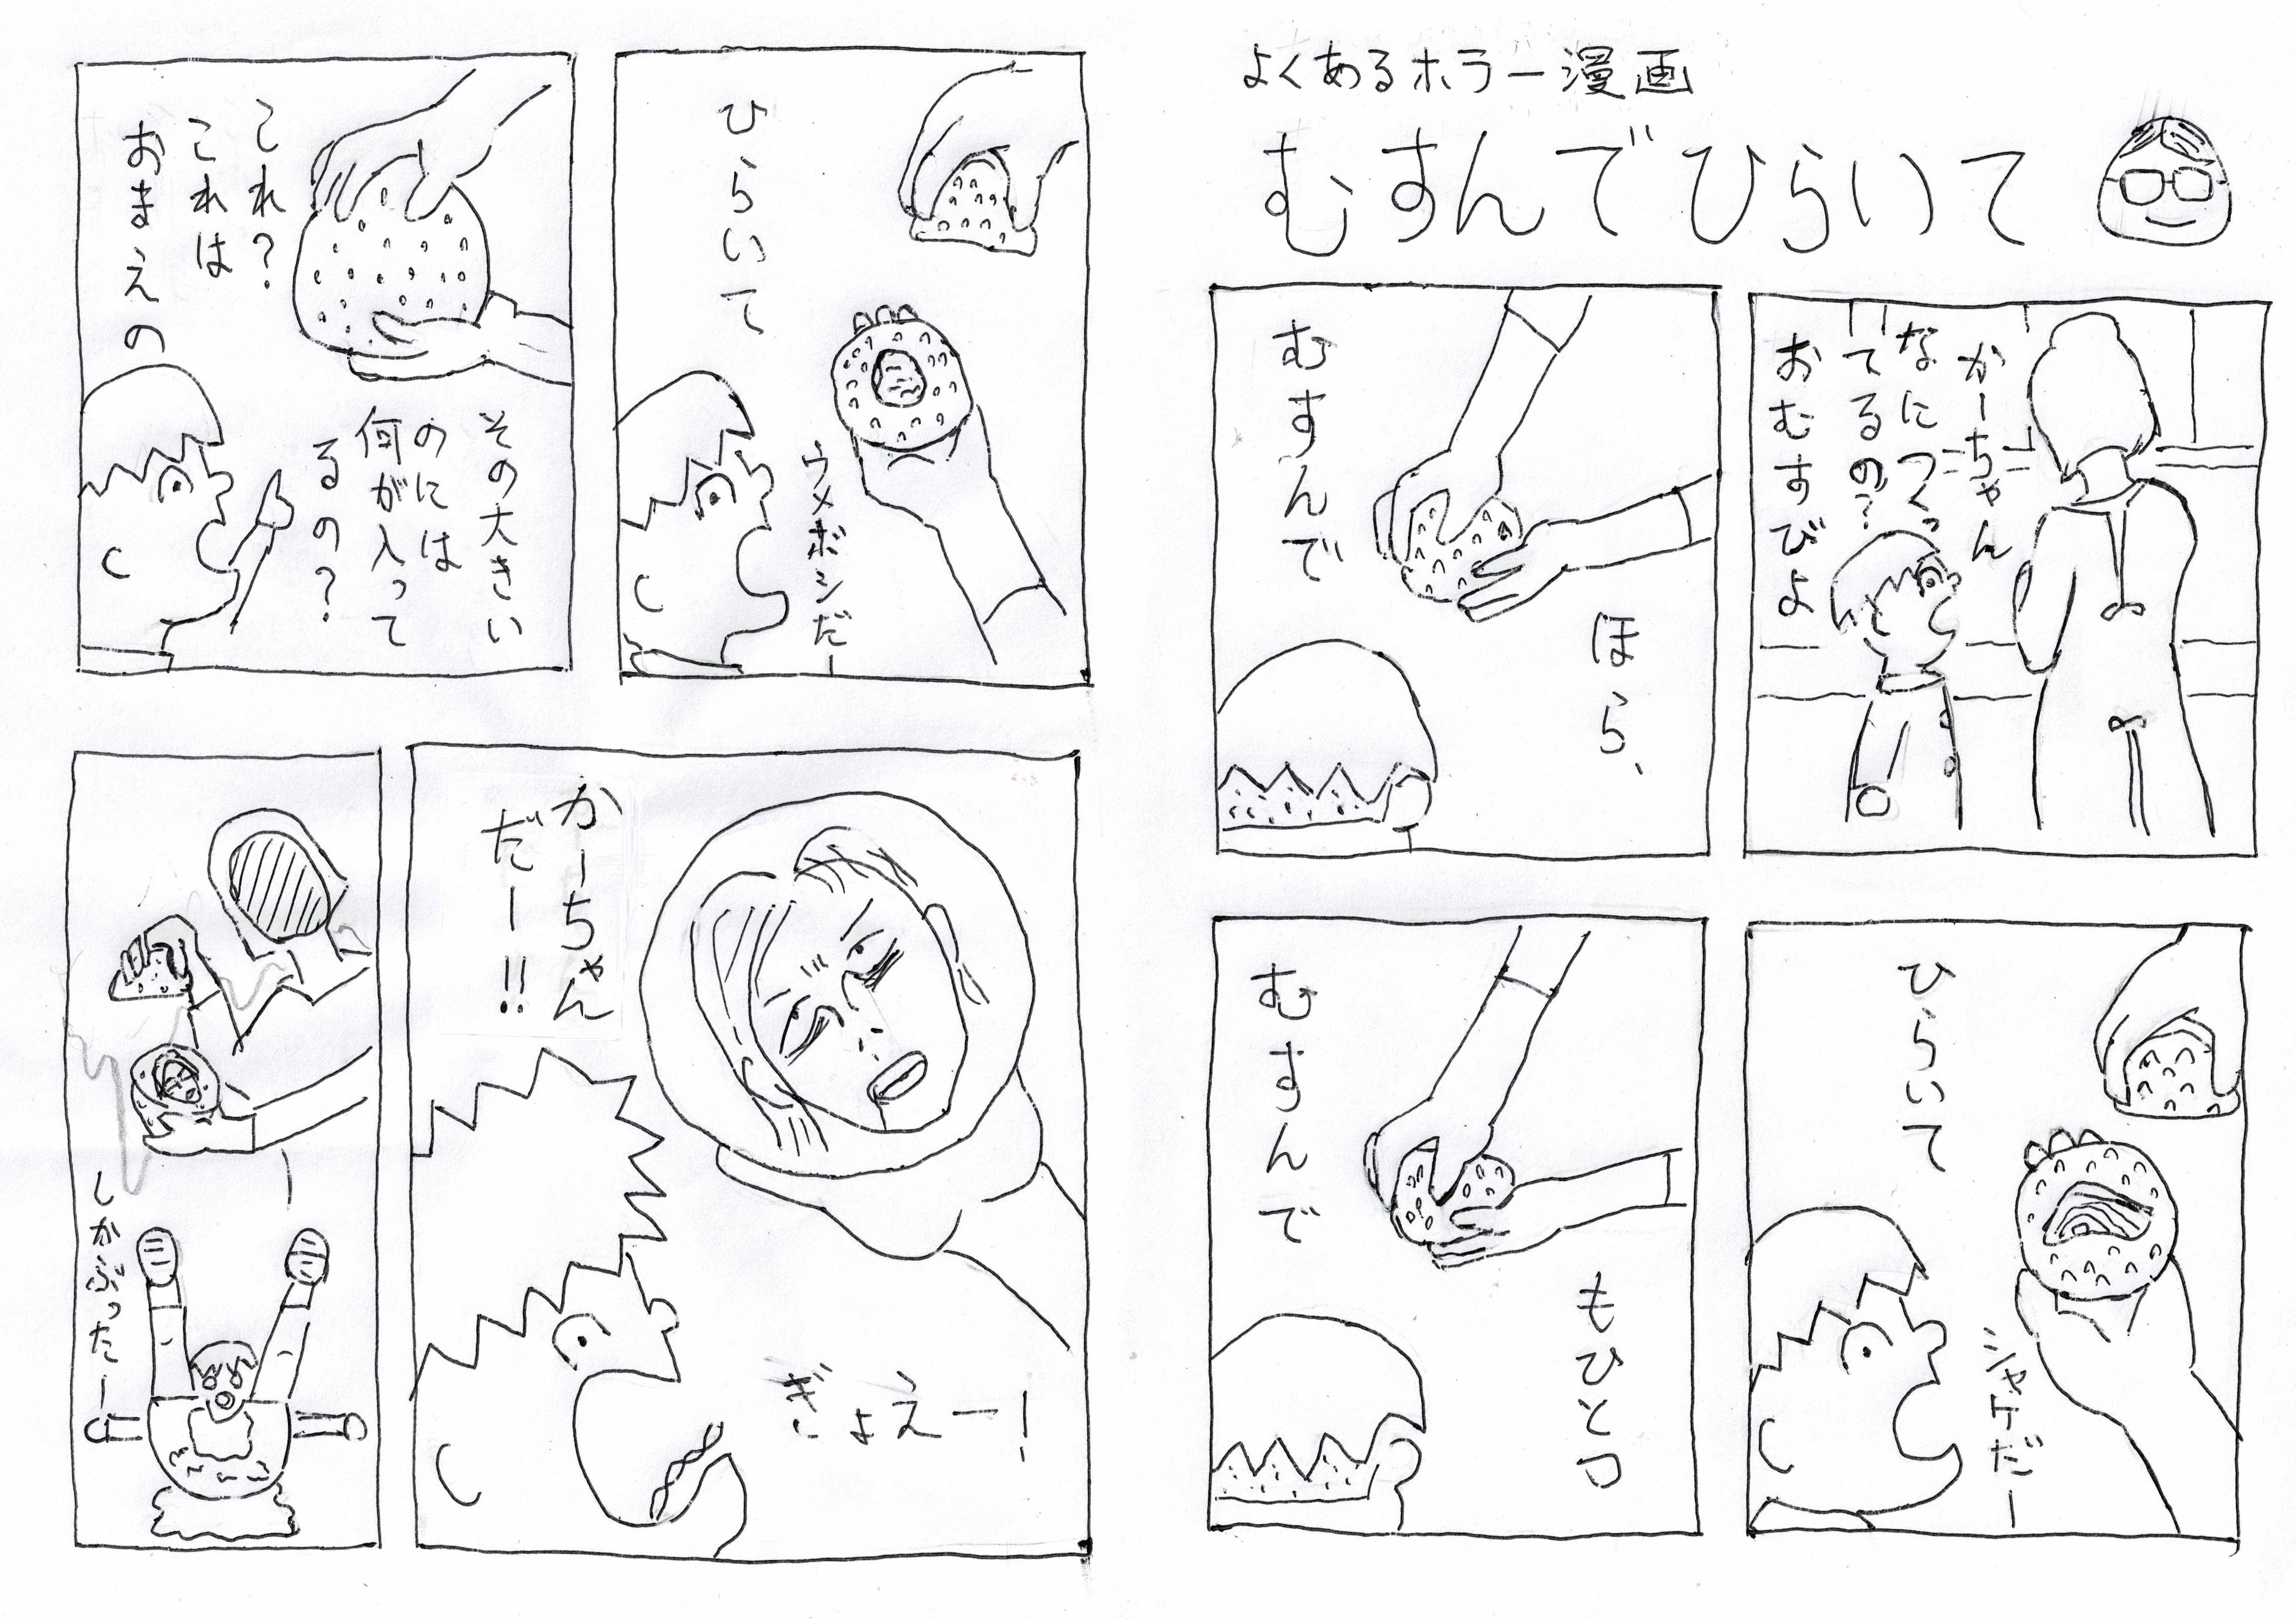 よくあるホラー漫画
むすんでひらいて
かーちゃん
なにつくっ
てるの？
おむすびよ
ほら、
むすんで
ひらいて
シャケだー
もひとつ
むすんで
ひらいて
ウメボシだー
その大きい
のには
何が入って
るの？
これ？
これは
おまえの
かーちゃん
だー!!
ぎょえー!
しかぶったー